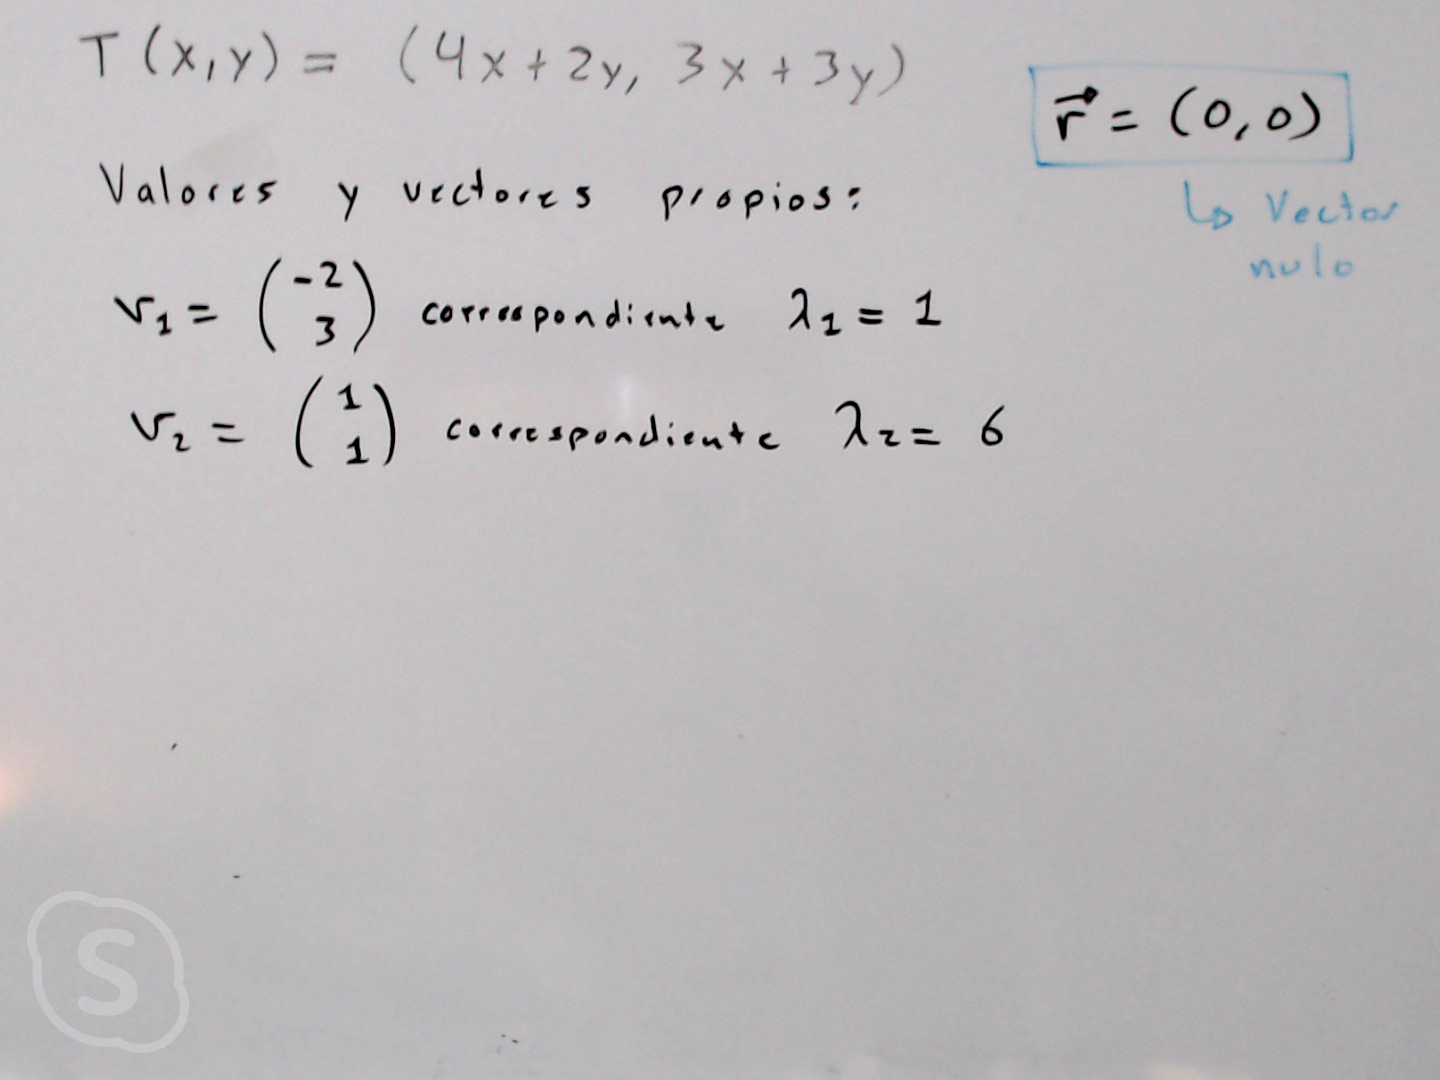 T(x,y) = (4x+2y, 3x+3y)
r⃗ = (0,0)
↳ Vector
nulo
Valores y vectores propios:
v₁ = (-2
3) correspondiente λ₁ = 1
v₂ = (1
1) correspondiente λ₂ = 6
S